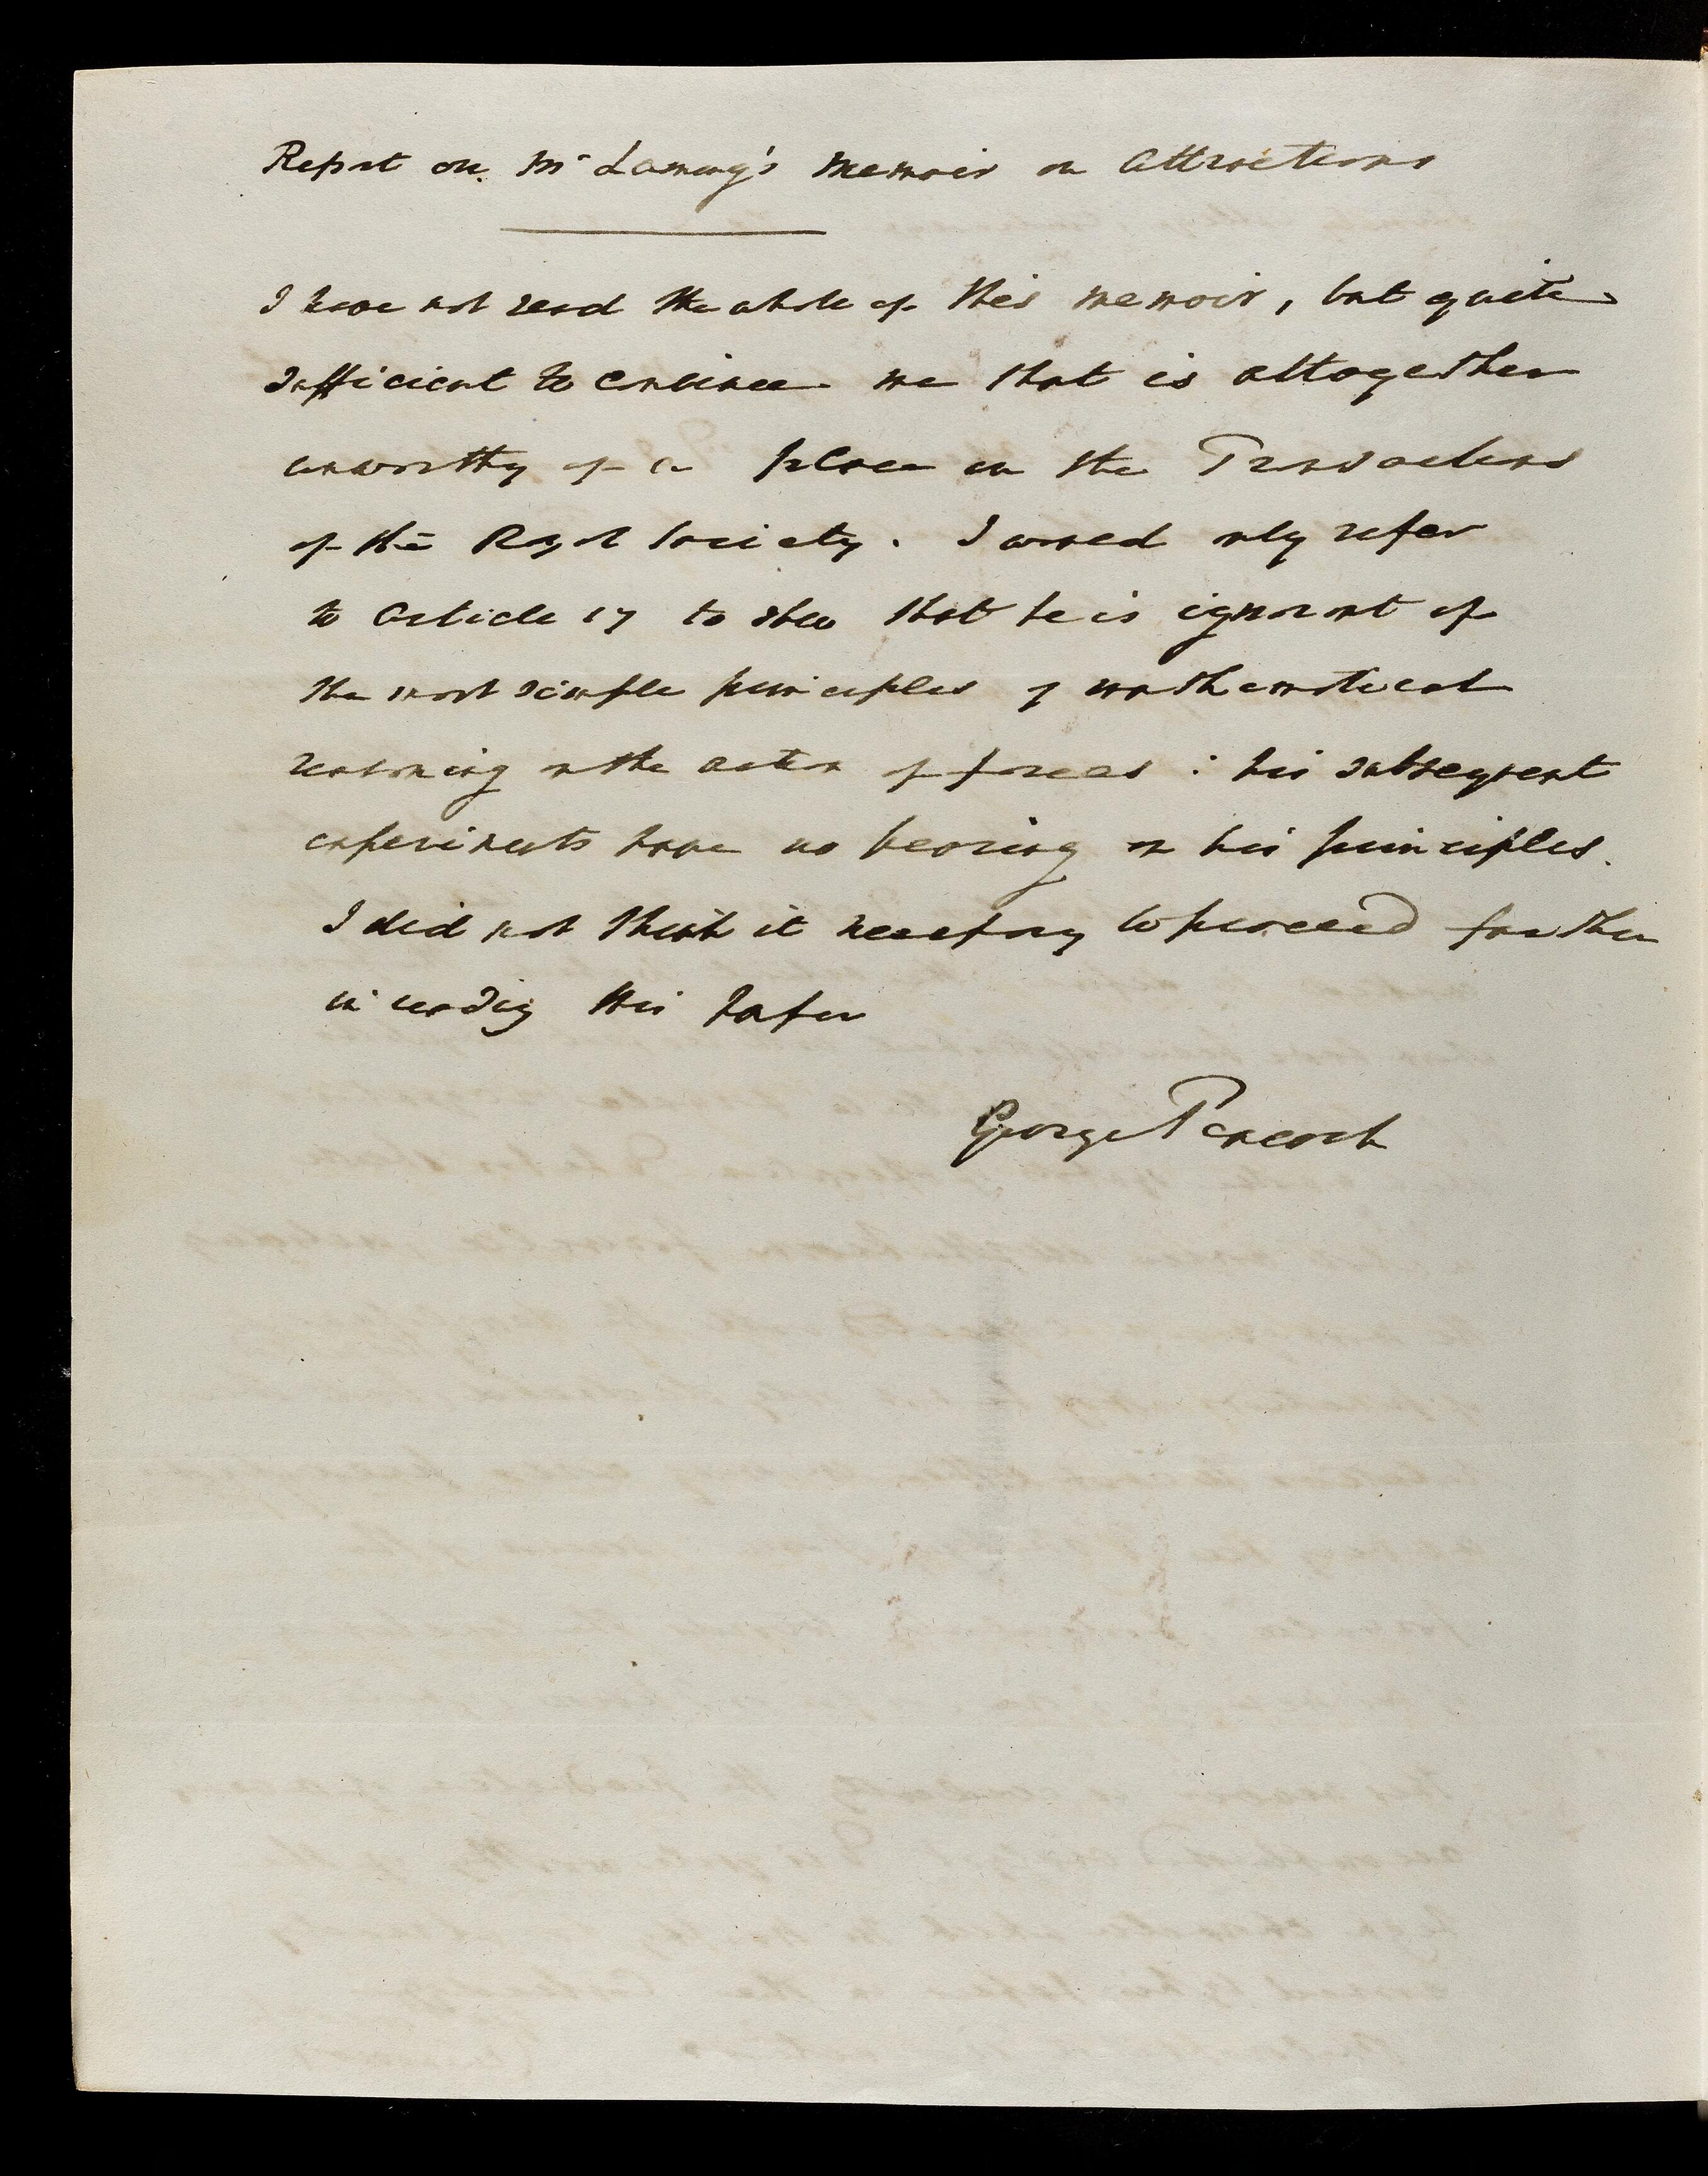 Report on Mr Laming's Memoir on Attractions
I have not read the whole of this memoir, but quite
sufficient to convince me that is altogether
unworthy of a place in the Transactions
of the Royal Society. I would only refer
to Article 17 to shew that he is ignorant of
the most simple principles of mathematical
reasoning on the action of forces : his subsequent
experiments have no bearing on his principles.
I did not think it necessary to proceed further
in reading this paper
George Peacock